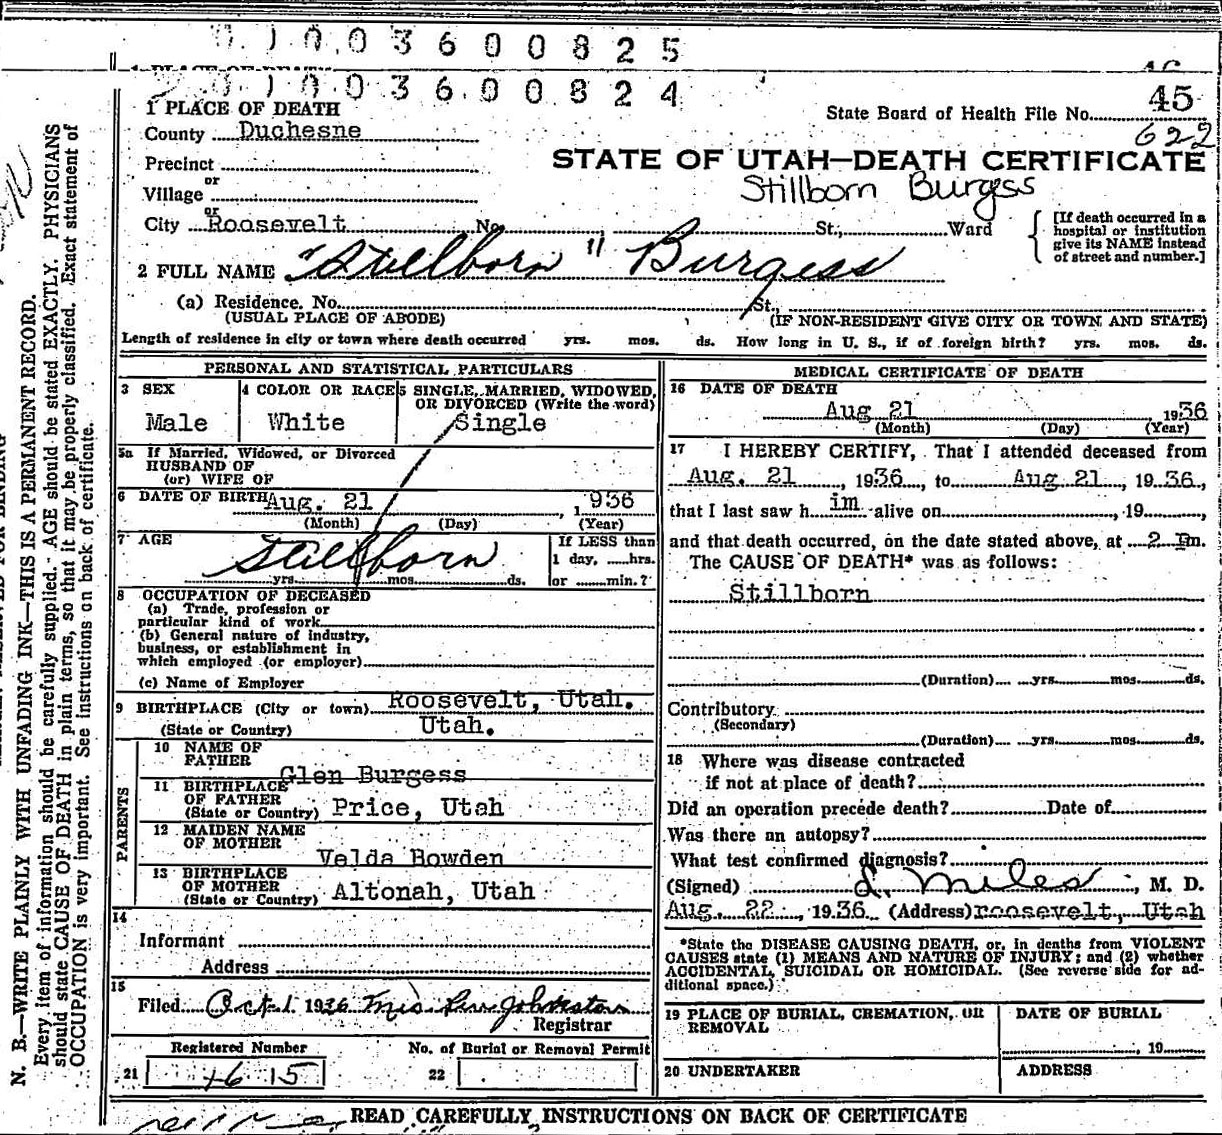 0 1 0 0 3 6 0 0 8 2 5
0 1 0 0 3 6 0 0 8 2 4
1 PLACE OF DEATH
State Board of Health File No. 45
County Duchesne
622
Precinct
STATE OF UTAH—DEATH CERTIFICATE
or
Village
Stillborn Burgess
or
City Roosevelt No. St., Ward
[If death occurred in a hospital or institution give its NAME instead of street and number.]
2 FULL NAME "Stillborn" Burgess
(a) Residence. No. St.,
(USUAL PLACE OF ABODE) (IF NON-RESIDENT GIVE CITY OR TOWN AND STATE)
Length of residence in city or town where death occurred yrs. mos. ds. How long in U. S., if of foreign birth? yrs. mos. ds.
PERSONAL AND STATISTICAL PARTICULARS
3 SEX
Male
4 COLOR OR RACE
White
5 SINGLE, MARRIED, WIDOWED, OR DIVORCED (Write the word)
Single
5a If Married, Widowed, or Divorced
HUSBAND OF
(or) WIFE OF
6 DATE OF BIRTH Aug. 21, 1936
(Month) (Day) (Year)
7 AGE Stillborn
yrs. mos. ds.
If LESS than
1 day, hrs.
or min.?
8 OCCUPATION OF DECEASED
(a) Trade, profession or
particular kind of work
(b) General nature of industry,
business, or establishment in
which employed (or employer)
(c) Name of Employer
9 BIRTHPLACE (City or town) Roosevelt, Utah.
(State or Country) Utah.
PARENTS
10 NAME OF
FATHER Glen Burgess
11 BIRTHPLACE
OF FATHER
(State or Country) Price, Utah
12 MAIDEN NAME
OF MOTHER Velda Bowden
13 BIRTHPLACE
OF MOTHER
(State or Country) Altonah, Utah
14
Informant
Address
15
Filed Oct 1 1936 Mrs Johnston
Registrar
Registered Number No. of Burial or Removal Permit
21 15 22
MEDICAL CERTIFICATE OF DEATH
16 DATE OF DEATH
Aug 21 1936
(Month) (Day) (Year)
17 I HEREBY CERTIFY, That I attended deceased from
Aug. 21, 1936, to Aug 21, 1936,
that I last saw him alive on , 19 ,
and that death occurred, on the date stated above, at 2 Pm.
The CAUSE OF DEATH* was as follows:
Stillborn
(Duration) yrs. mos. ds.
Contributory
(Secondary)
(Duration) yrs. mos. ds.
18 Where was disease contracted
if not at place of death?
Did an operation precede death? Date of
Was there an autopsy?
What test confirmed diagnosis?
(Signed) L. Miles, M. D.
Aug. 22, 1936 (Address) roosevelt, Utah
*State the DISEASE CAUSING DEATH, or, in deaths from VIOLENT
CAUSES state (1) MEANS AND NATURE OF INJURY; and (2) whether
ACCIDENTAL, SUICIDAL OR HOMICIDAL. (See reverse side for ad-
ditional space.)
19 PLACE OF BURIAL, CREMATION, OR
REMOVAL
DATE OF BURIAL
, 19
20 UNDERTAKER
ADDRESS
READ CAREFULLY INSTRUCTIONS ON BACK OF CERTIFICATE
N. B.—WRITE PLAINLY WITH UNFADING INK—THIS IS A PERMANENT RECORD.
Every item of information should be carefully supplied. AGE should be stated EXACTLY. PHYSICIANS
should state CAUSE OF DEATH in plain terms, so that it may be properly classified. Exact statement of
OCCUPATION is very important. See instructions on back of certificate.